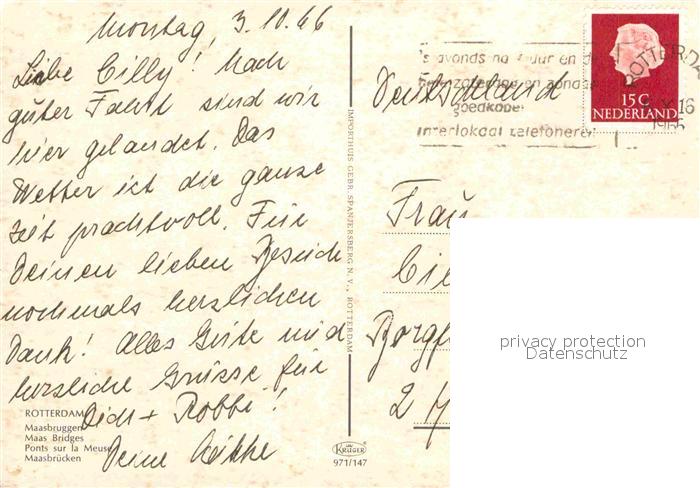 Montag, 3.10.66
Liebe Cilly! Nach
guter Fahrt sind wir
hier gelandet. Das
Wetter ist die ganze
Zeit prachtvoll. Für
Deinen lieben Besuch
nochmals herzlichen
Dank! Alles Gute und
herzliche Grüsse für
Dich + Robbi!
Deine
ROTTERDAM
Maasbruggen
Maas Bridges
Ponts sur la Meuse
Maasbrücken
IMPORTHUIS GEBR. SPANJERSBERG N.V., ROTTERDAM
KRÜGER
971/147
's avonds na uur en
en zondag
goedkoper
interlokaal telefoneren
ROTTERDA
15 C
NEDERLAND
Deutschland
Frau
Cil
Borgf
2 H
privacy protection
Datenschutz